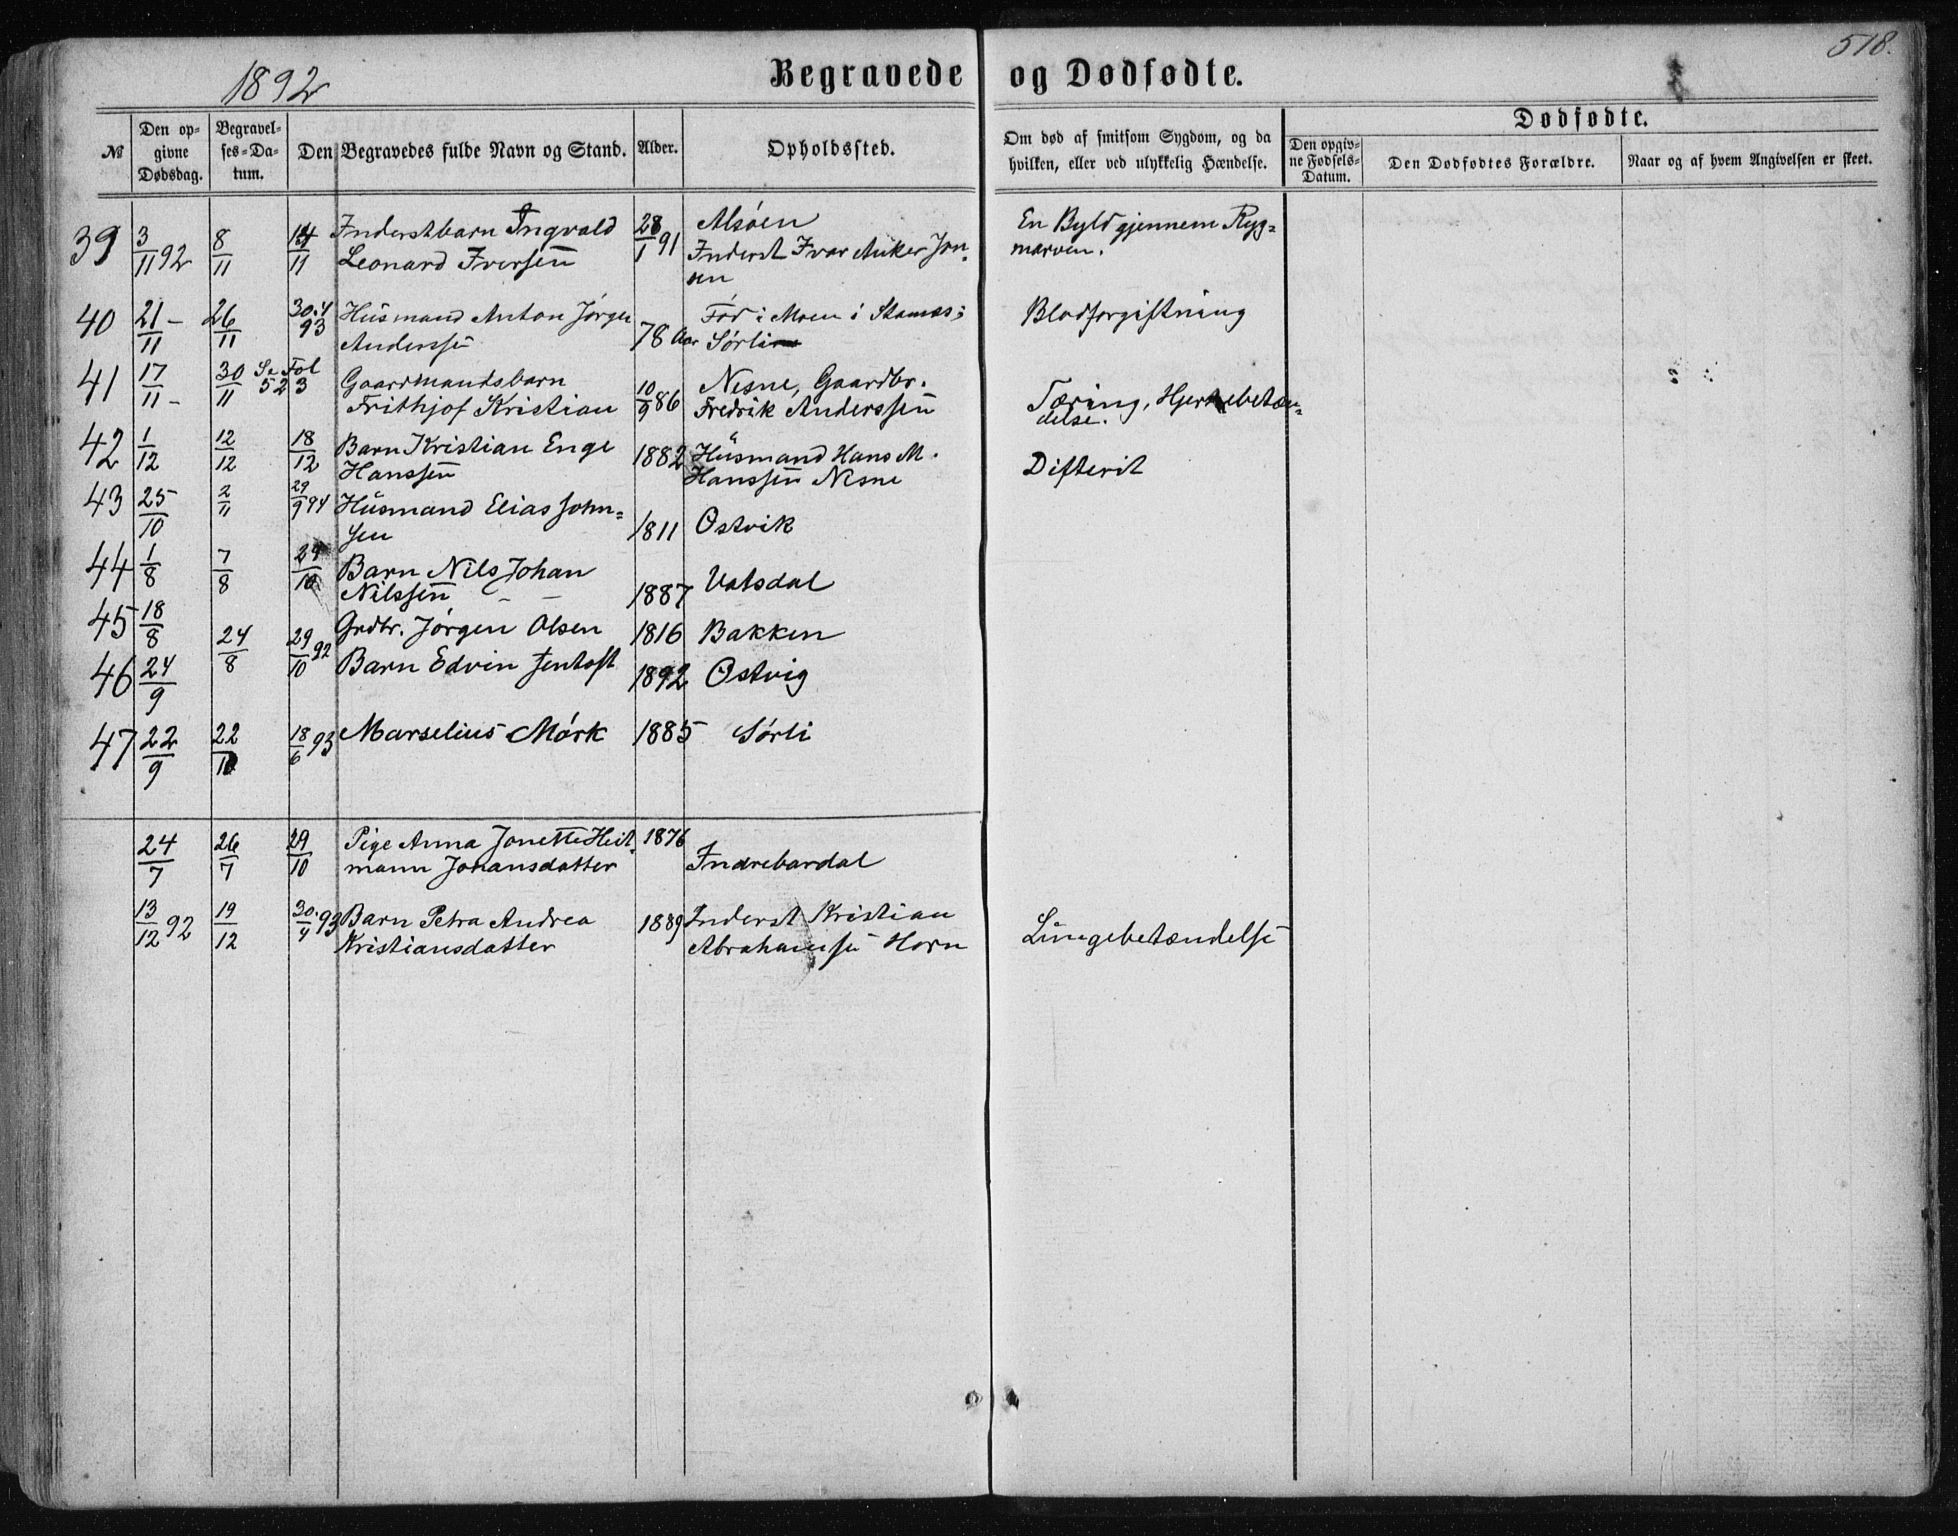 518.
1892
Begravede og Dødfødte.
№
Den op-
givne
Dødsdag.
Begravel-
ses-Da-
tum.
Den Begravedes fulde Navn og Stand.
Alder.
Opholdssted.
Om død af smitsom Sygdom, og da
hvilken, eller ved ulykkelig Hændelse.
Dødfødte.
Den opgiv-
ne Fødsels-
Datum.
Den Dødfødtes Forældre.
Naar og af hvem Angivelsen er skeet.
39 3/11 92 8/11 14/11 Inderstbarn Ingvald 28/1 91 Alsøen En Byld gjennem Ryg=
Leonard Iversen Inderst Ivar Anker Jon- marven.
sen
40 21/11 - 26/11 30.4 93 Husmand Anton Jørgen 78 Aar Fød i Moen i Stamnes; Blodforgiftning
Anderssen Sørli
41 17/11 - 30/11 Se Fol 523 Gaardmandsbarn 10/9 86 Nesne, Gaardbr. Tæring, Hjertebetæn=
Frithjof Kristian Fredrik Anderssen delse.
42 1/12 12/12 18/12 Barn Kristian Enge 1882 Husmand Hans M. Difterit
Hanssen Hanssen Nesne
43 25/10 2/11 29/9 94 Husmand Elias John= 1811 Ostvik
sen
44 1/8 7/8 29/10 Barn Nils Johan 1887 Vatsdal
Nilssen
45 18/8 24/8 29/10 92 Grdbr. Jørgen Olsen 1816 Bakken
46 24/9 Barn Edvin Jentoft 1892 Ostvig
47 22/9 22/10 18/6 93 Marselius Mørk 1885 Sørli
24/7 26/7 29/10 Pige Anna Jonette Heit- 1876 Indrebardal
mann Johansdatter
13/12 92 19/12 30./4 93 Barn Petra Andrea 1889 Inderst Kristian Lungebetændelse
Kristiansdatter Abrahamsen Horn